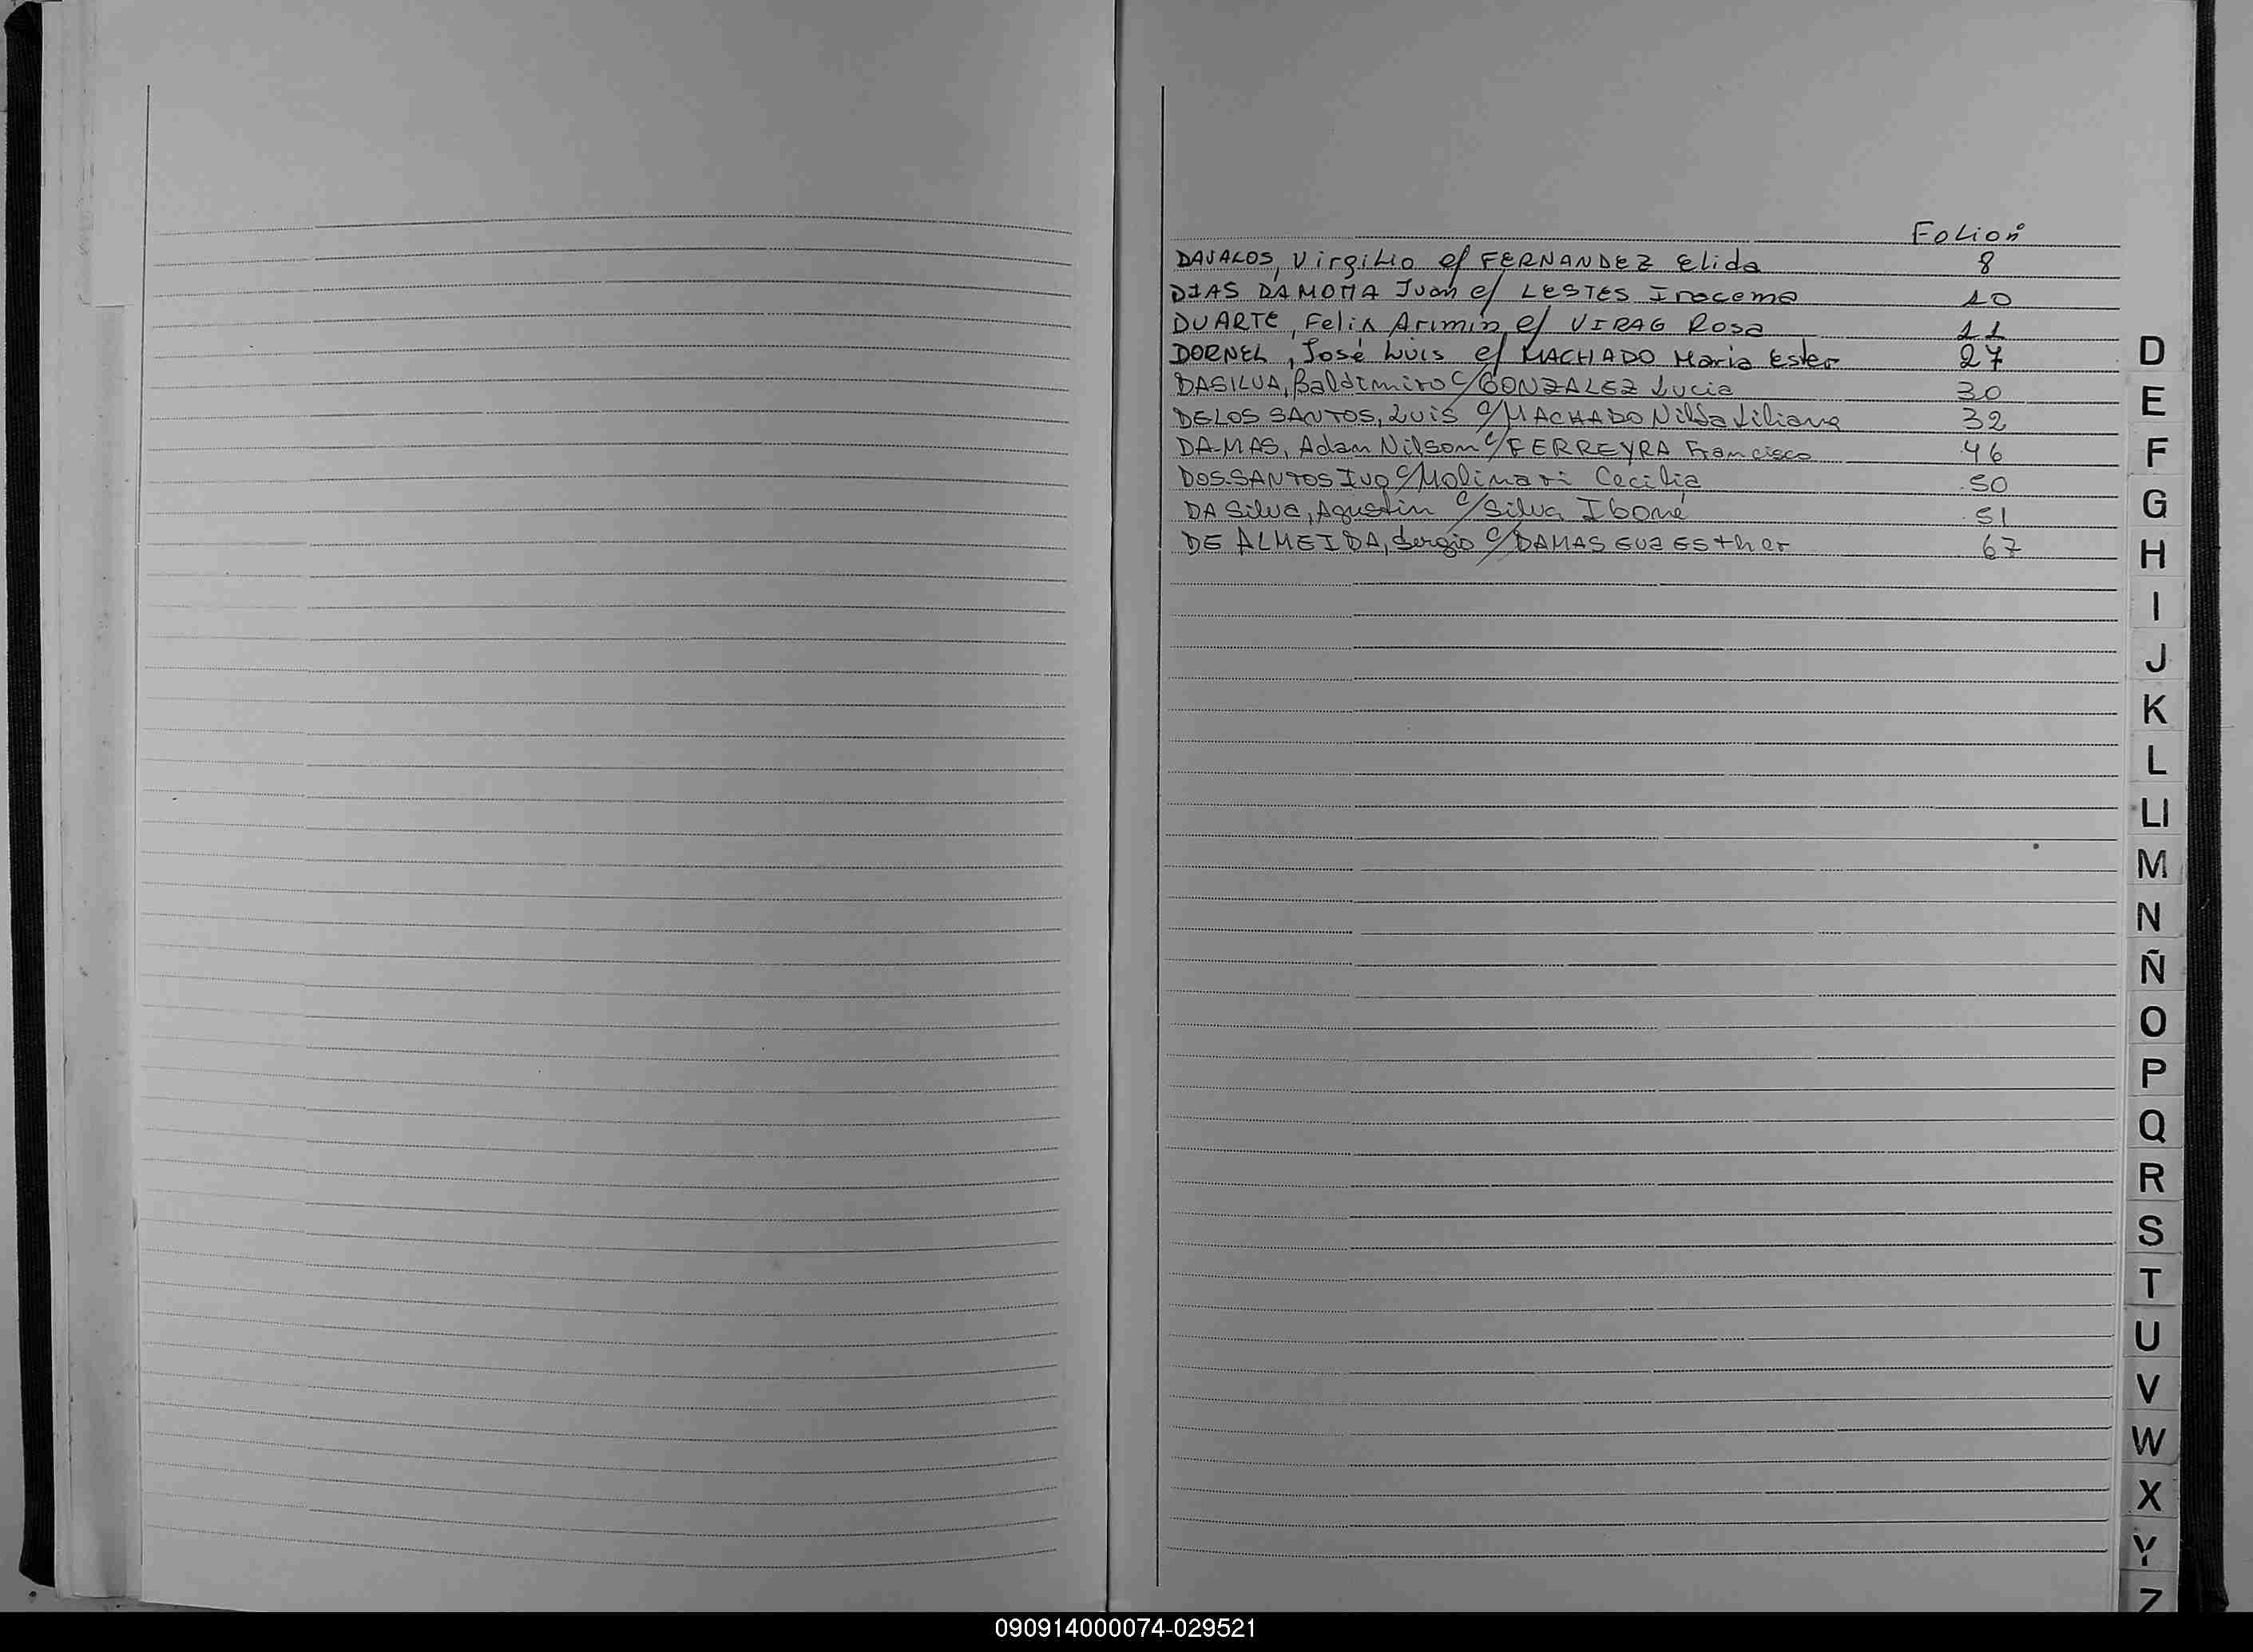 Folio nº
DAVALOS, Virgilio c/ FERNANDEZ Elida 8
DIAS DA MOTTA Juan c/ LESTES Irocema 10
DUARTE, Felix Arimin c/ VIRAG Rosa 11
DORNEL, José Luis c/ MACHADO Maria Ester 27
DASILVA, Baldimiro c/ GONZALEZ Lucia 30
DELOS SANTOS, Luis c/ MACHADO Nilda Liliana 32
DA-MAS, Adam Nilson c/ FERREYRA Francisca 46
DOS-SANTOS Ivo c/ Molinari Cecilia 50
DA Silva, Agustin c/ Silva Iboné 51
DE ALMEIDA, Sergio c/ DAMAS Eva Esther 67
D
E
F
G
H
I
J
K
L
Ll
M
N
Ñ
O
P
Q
R
S
T
U
V
W
X
Y
Z
090914000074-029521